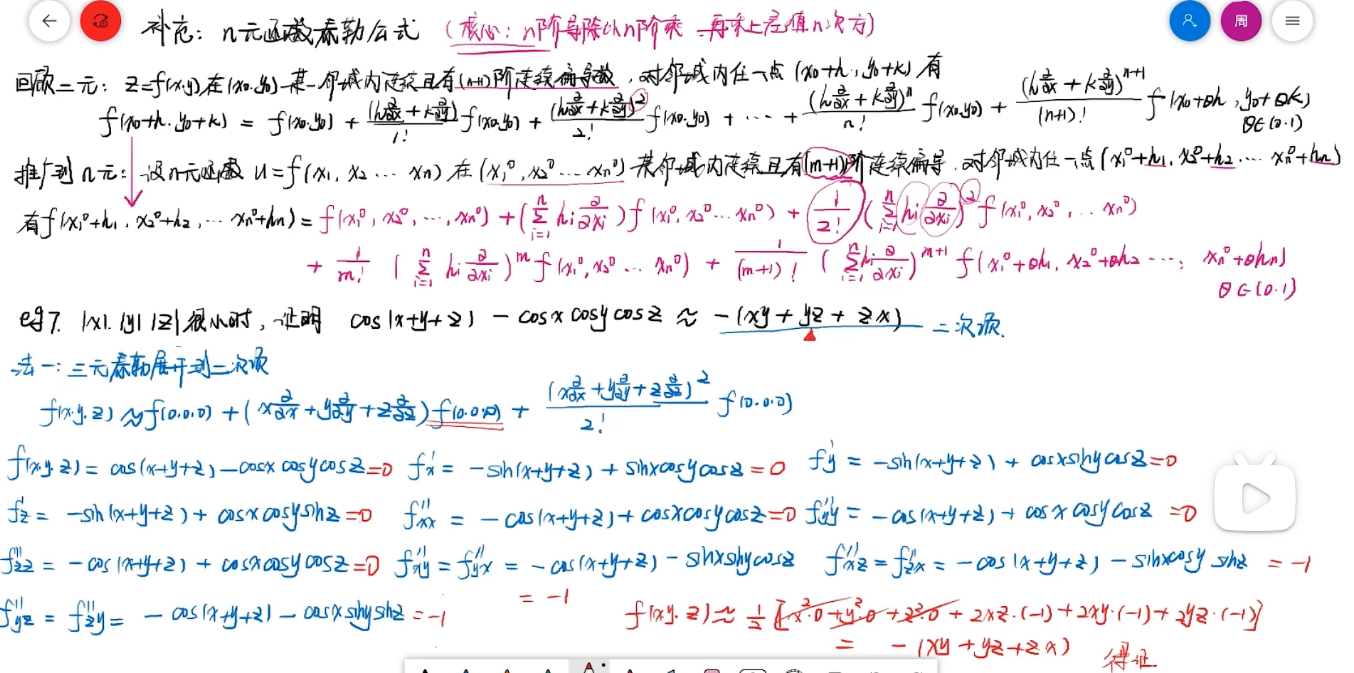 补充：n元函数泰勒公式（核心：n阶导除以n阶乘 再乘上差值n次方）
周
回顾二元：z=f(x,y)在(x0,y0)某一邻域内连续且有(n+1)阶连续偏导数，对邻域内任一点(x0+h,y0+k)有
f(x0+h,y0+k) = f(x0,y0) + (h∂/∂x + k∂/∂y)/1! f(x0,y0) + (h∂/∂x + k∂/∂y)²/2! f(x0,y0) + ⋯ + (h∂/∂x + k∂/∂y)ⁿ/n! f(x0,y0) + (h∂/∂x + k∂/∂y)ⁿ⁺¹/(n+1)! f(x0+θh, y0+θk)
θ∈(0,1)
推广到n元：设n元函数 u=f(x1, x2 ⋯ xn) 在 (x1⁰, x2⁰ ⋯ xn⁰) 某邻域内连续且有(m+1)阶连续偏导，对邻域内任一点(x1⁰+h1, x2⁰+h2 ⋯ xn⁰+hn)
有f(x1⁰+h1, x2⁰+h2, ⋯ xn⁰+hn) = f(x1⁰, x2⁰, ⋯, xn⁰) + (∑_{i=1}^{n} hi ∂/∂xi) f(x1⁰, x2⁰ ⋯ xn⁰) + 1/2! (∑_{i=1}^{n} hi ∂/∂xi)² f(x1⁰, x2⁰, ⋯ xn⁰)
+ 1/m! (∑_{i=1}^{n} hi ∂/∂xi)ᵐ f(x1⁰, x2⁰ ⋯ xn⁰) + 1/(m+1)! (∑_{i=1}^{n} hi ∂/∂xi)ᵐ⁺¹ f(x1⁰+θh1, x2⁰+θh2 ⋯, xn⁰+θhn)
θ∈(0,1)
eg7. |x|,|y|,|z|很小时，证明 cos(x+y+z) - cosx cosy cosz ≈ -(xy + yz + zx) 二次项.
法一：三元泰勒展开到二次项
f(x,y,z) ≈ f(0,0,0) + (x∂/∂x + y∂/∂y + z∂/∂z) f(0,0,0) + (x∂/∂x + y∂/∂y + z∂/∂z)²/2! f(0,0,0)
f(x,y,z) = cos(x+y+z) - cosx cosy cosz = 0 f'x = -sin(x+y+z) + sinx cosy cosz = 0 f'y = -sin(x+y+z) + cosx siny cosz = 0
f'z = -sin(x+y+z) + cosx cosy sinz = 0 f''xx = -cos(x+y+z) + cosx cosy cosz = 0 f''yy = -cos(x+y+z) + cosx cosy cosz = 0
f''zz = -cos(x+y+z) + cosx cosy cosz = 0 f''xy = f''yx = -cos(x+y+z) - sinx siny cosz f''xz = f''zx = -cos(x+y+z) - sinx cosy sinz = -1
= -1
f''yz = f''zy = -cos(x+y+z) - cosx siny sinz = -1 f(x,y,z) ≈ 1/2 [x²·0 + y²·0 + z²·0 + 2xz·(-1) + 2xy·(-1) + 2yz·(-1)]
= -(xy + yz + zx) 得证